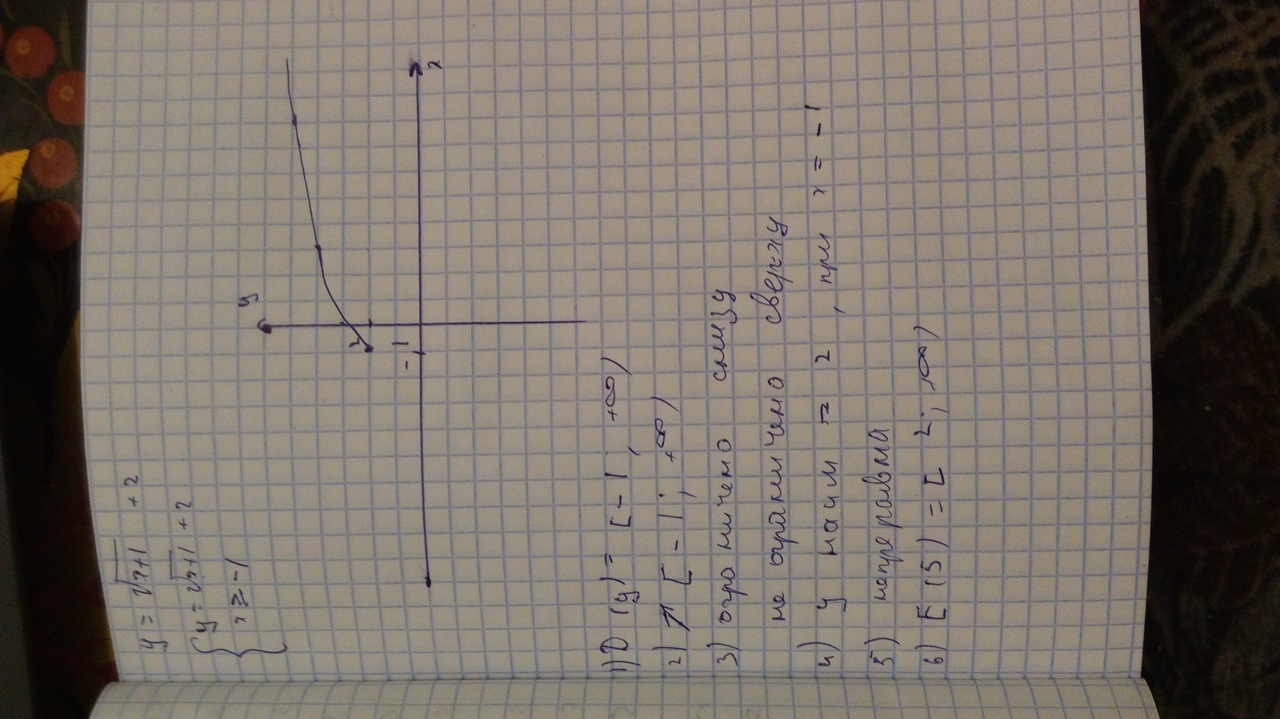 y = √x+1 + 2
{ y = √x+1 + 2
x ≥ -1
y
2
-1
x
1) D (y) = [-1; +∞)
2) ↗ [-1; +∞)
3) огроничено снизу
не ограничено сверху
4) y наим = 2, при x = -1
5) непрерывна
6) E (5) = [2; +∞)